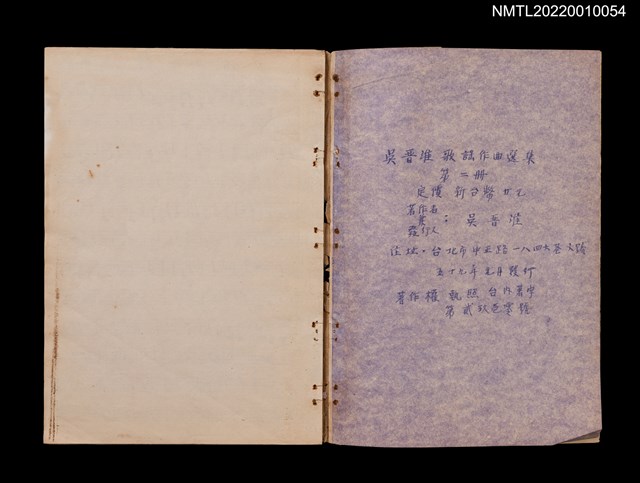 NMTL20220010054
吳晋淮歌謠作曲選集
第二册
定價 新台幣廿元
著作者
兼
發行人
: 吳晋淮
住址・台北市中正路一八四六
五十九年元月發行
著作權執照台內著字
第貳玖
號